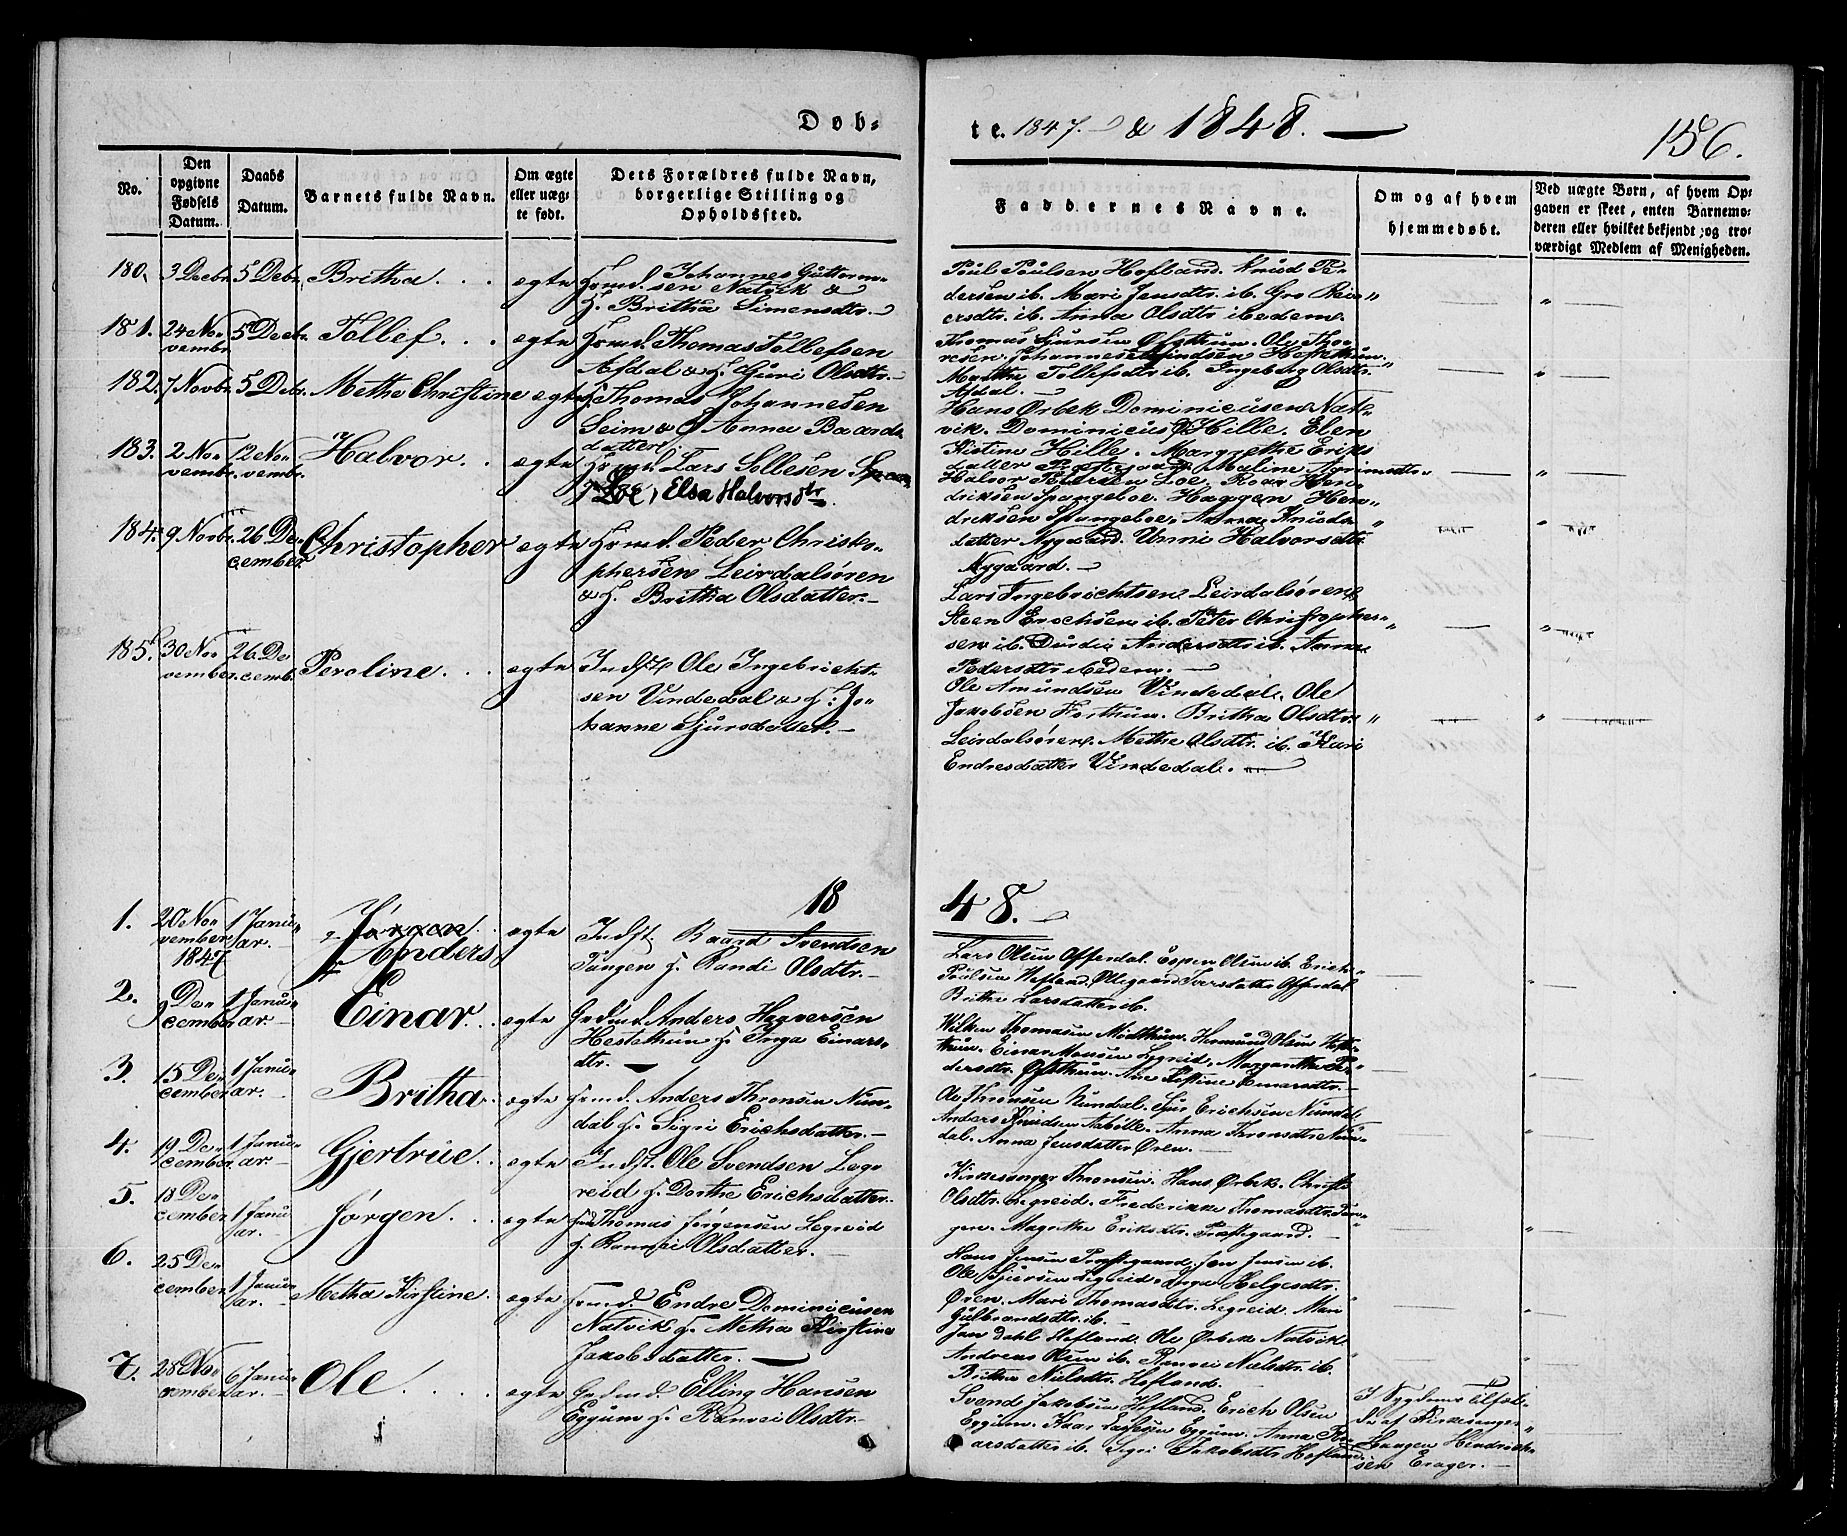 Døb-
te. 1847. & 1848. —
156.
No.
Den opgivne Fødsels Datum.
Daabs Datum.
Barnets fulde Navn.
Om ægte eller uæg- te født.
Dets Forældres fulde Navn, borgerlige Stilling og Opholdssted.
Faddernes Navne.
Om og af hvem hjemmedøbt.
Ved uægte Børn, af hvem Op-
gaven er skeet, enten Barnemo-
deren eller hvilket bekjendt, og tro-
værdigt Medlem af Menigheden.
180. 3 Decbr 5 Debr. Britha. ægte Hrmd. Johannes Guttorm-
sen Natvik &
H. Britha Simensdtr.
Poul Poulsen Hofland. Knud Pe-
dersen ib. Mari Jensdtr. ib. Gro Peie-
ersdtr. ib. Anna Olsdtr ibedem.
181. 24 No-
vembr. 5 Decbr. Tollef. ægte Hrmd. Thomas Tollefsen
Afdal & H. Guri Olsdtr.
Thomas Sjursen Øfsthun. Ole Tho-
resen. Johannes Hestethun.
Marthe Tollefsdtr ib. Ingeborg Olsdtr.
Afdal.
182. 7 Novbr. 5 Debr. Methe Christine ægte H. Thomas Johannesen
Seim & H. Anna Baards-
datter.
Hans Ørbek Dominicusen Nat-
vik. Dominicus Hille. Elen
Kistine Hille. Margrethe Eriks
datter Præstegaard. Maline
183. 2 No-
vembr. 12 No-
vembr. Halvor. ægte Hrmd. Lars Sollesen
Loe, Elsa Halvorsdtr.
Halvor Petersen Loe. Roar Hen-
driksen Spangeboe. Haagen Hen-
driksen Spangeboe. Anna Knuds-
datter Nygaard. Unni Halvorsdtr
Nygaard.
184. 9 Novbr. 26 De-
cember. Christopher ægte Hrmd. Peder Christo-
phersen Leirdalsøren
& H. Britha Olsdatter.
Lars Ingebrichtsen Leirdalsøren
Steen Erichsen ib. Peter Christopher-
sen ib. Durdie Andersdtr ib. Anna
Pedersdtr ibedem.
185. 30 No-
vember. 26 De
cemb. Peroline. ægte Indst. Ole Ingebricht-
sen Vindedal & H. Jo-
hanne Sjursdatter.
Ole Amundsen Vindedal. Ole
Jakobsen Horthun. Britha Olsdtr.
Leirdalsøren. Methe Olsdtr. ib. Kari
Endresdatter Vindedal.
18
48.
1. 20 No-
vember
1847 1 Janu-
ar. Jørgen
Anders ægte Indst. Baard Svendsen
Tangen H. Randi Olsdtr.
Lars Olsen Offerdal. Espen Olsen ib. Erich
Poulsen Hofland. Ølegaard Iversdatter Offerdal
Brithe Larsdatter ib.
2. 9 De-
cember 1 Janu-
ar. Einar. ægte Grdmd. Anders Haaversen
Hestethun H. Inga Einars-
dtr.
Wilken Thomasen Modthun. Hermund Olsen Heste-
thun. Einar Monsen Legreid. Margrethe Pe-
dersdtr. Øfsthun. Ane Kistine Einarsdtr.
3. 15 De-
cember 1 Janu-
ar. Britha. ægte Hrmd. Anders Thronsen Nun-
dal H. Sigri Erichsdatter.
Ole Thronsen Nundal. Sjur Erichsen Nundal.
Anders Knudsen Aabølle. Anna Thronsdtr Nun-
dal. Anna Jensdatter Øren.
4. 19 De-
cember 1 Janu-
ar. Gjertrue. ægte Indst. Ole Svendsen Leg-
reid H. Dorthe Erichsdatter.
Kirkesanger Thronsen. Hans Ørbek. Christi
Olsdtr. Legreid. Frederikke Thomasdtr. Tan-
gen. Magrethe Eriksdtr. Præstegaard.
5. 18 De-
cember 1 Janu-
ar. Jørgen. ægte Thomas Jørgensen Legreid
H. Rannei Olsdatter.
Hans Jensen Præstegaard. Jon Jensen ib.
Ole Sjursen Legreid. Inga Helgesdtr.
Øren. Mari Thomasdtr. Legreid. Mari
Gulbrandsdtr ib.
6. 25 De-
cember. 1 Janu-
ar. Metha Kirstine. ægte Hrmd. Endre Dominicusen
Natvik H. Metha Kirstine
Jakobsdatter.
Jan Dahl Hofland. Ole Ørbek Natvik.
Andreas Olsen ib. Rannei Nielsdtr. ib.
Brithe Nielsdtr. Hofland.
7. 28 No-
vember. 6 Janu-
ar. Ole. ægte Grdmd. Elling Hansen
Eggum H. Ranvei Olsdtr.
Svend Jakobsen Hofland. Erich Olsen
Eggum. Eggum. Anna
arsdatter ib. Sigri Jakobsdtr Hofland.
I Sygdoms tilfæl-
de af Kirkesanger
Haagen Hendrich-
sen